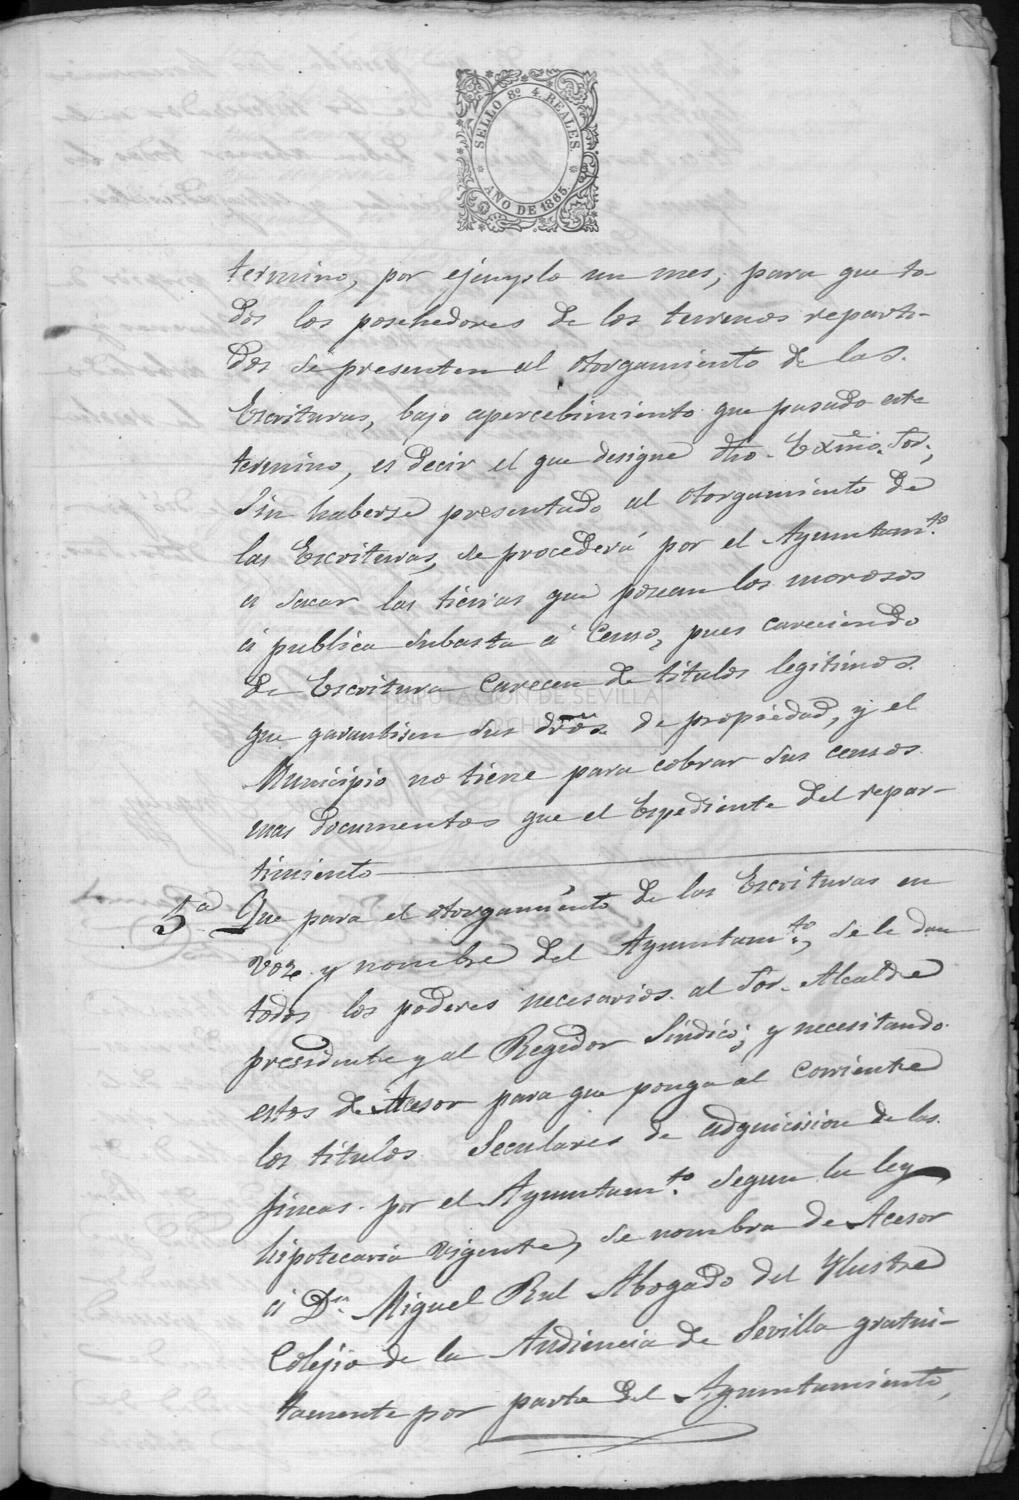 SELLO 8º 4. REALES.
AÑO DE 1865.
termino, por ejemplo un mes, para que to-
dos los poschedores de los terrenos reparti-
dos se presenten al otorgamiento de las.
Escrituras, bajo apercebimiento que pasado este
termino, es decir el que designe dho. Exmo. Sor.,
Sin haberse presentado al otorgamiento de
las Escrituras, se procederá por el Ayuntamto.
a sacar las tierras que posean los morosos
á publica subasta á Censo, pues careciendo
de Escritura carecen de titulos legitimos.
que garantisen sus dros. de propiedad, y el
Municipio no tiene para cobrar sus censos
mas documentos que el Espediente del repar-
timiento
5ª Que para el otorgamiento de las Escrituras en
voz y nombre del Ayuntamto., se le dan
todos los poderes necesarios. al Sor. Alcalde
presidente y al Regidor Sindico; y necesitando
estos de Acesor para que ponga al corriente
los titulos. Seculares de adquicision de las.
fincas. por el Ayuntamto. segun la ley
hipotecaria vigente, se nombra de Acesor
á Dn. Miguel Rul Abogado del Ylustre
Colejio de la Audiencia de Sevilla gratui-
tamente por parte del Ayuntamiento,
DIPUTACIÓN DE SEVILLA